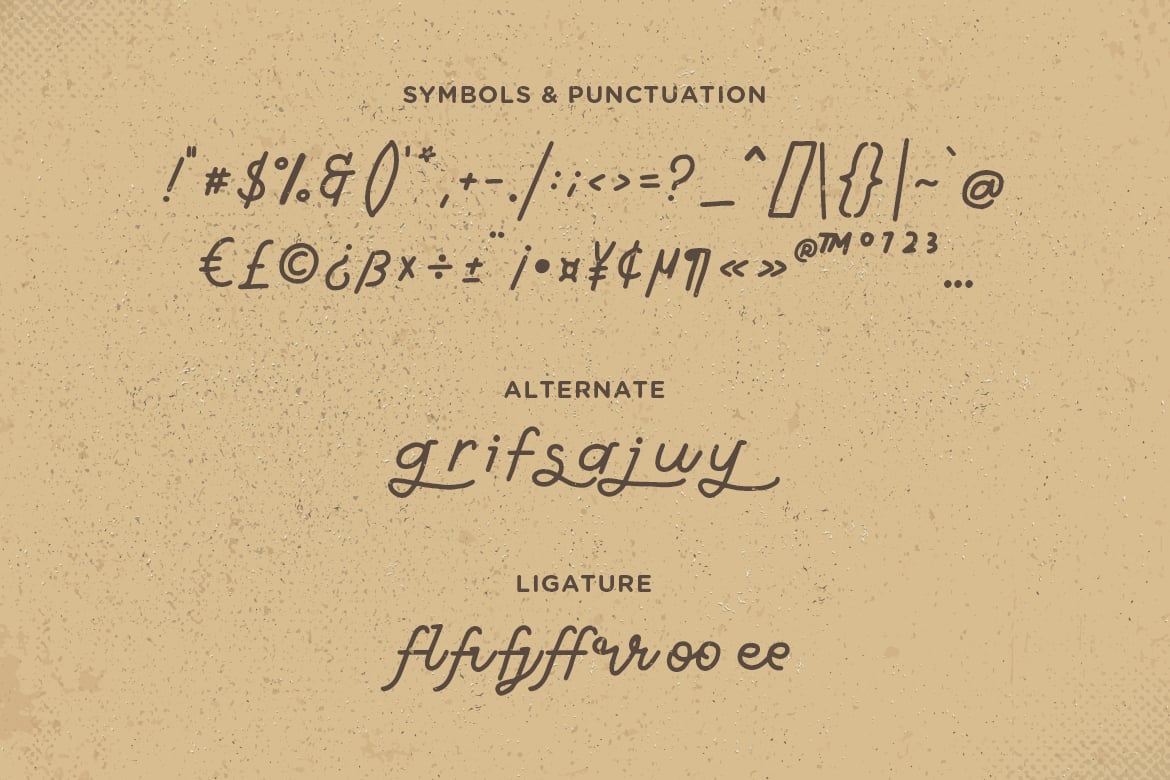 SYMBOLS & PUNCTUATION
!"#$%&()'*,+-./:;<>=?_^[]\{}|~`@
€£©¿βx÷±¨¡•¤¥¢µ¶«»®™°123…
ALTERNATE
grifsajwy
LIGATURE
flfifjffrroo ee